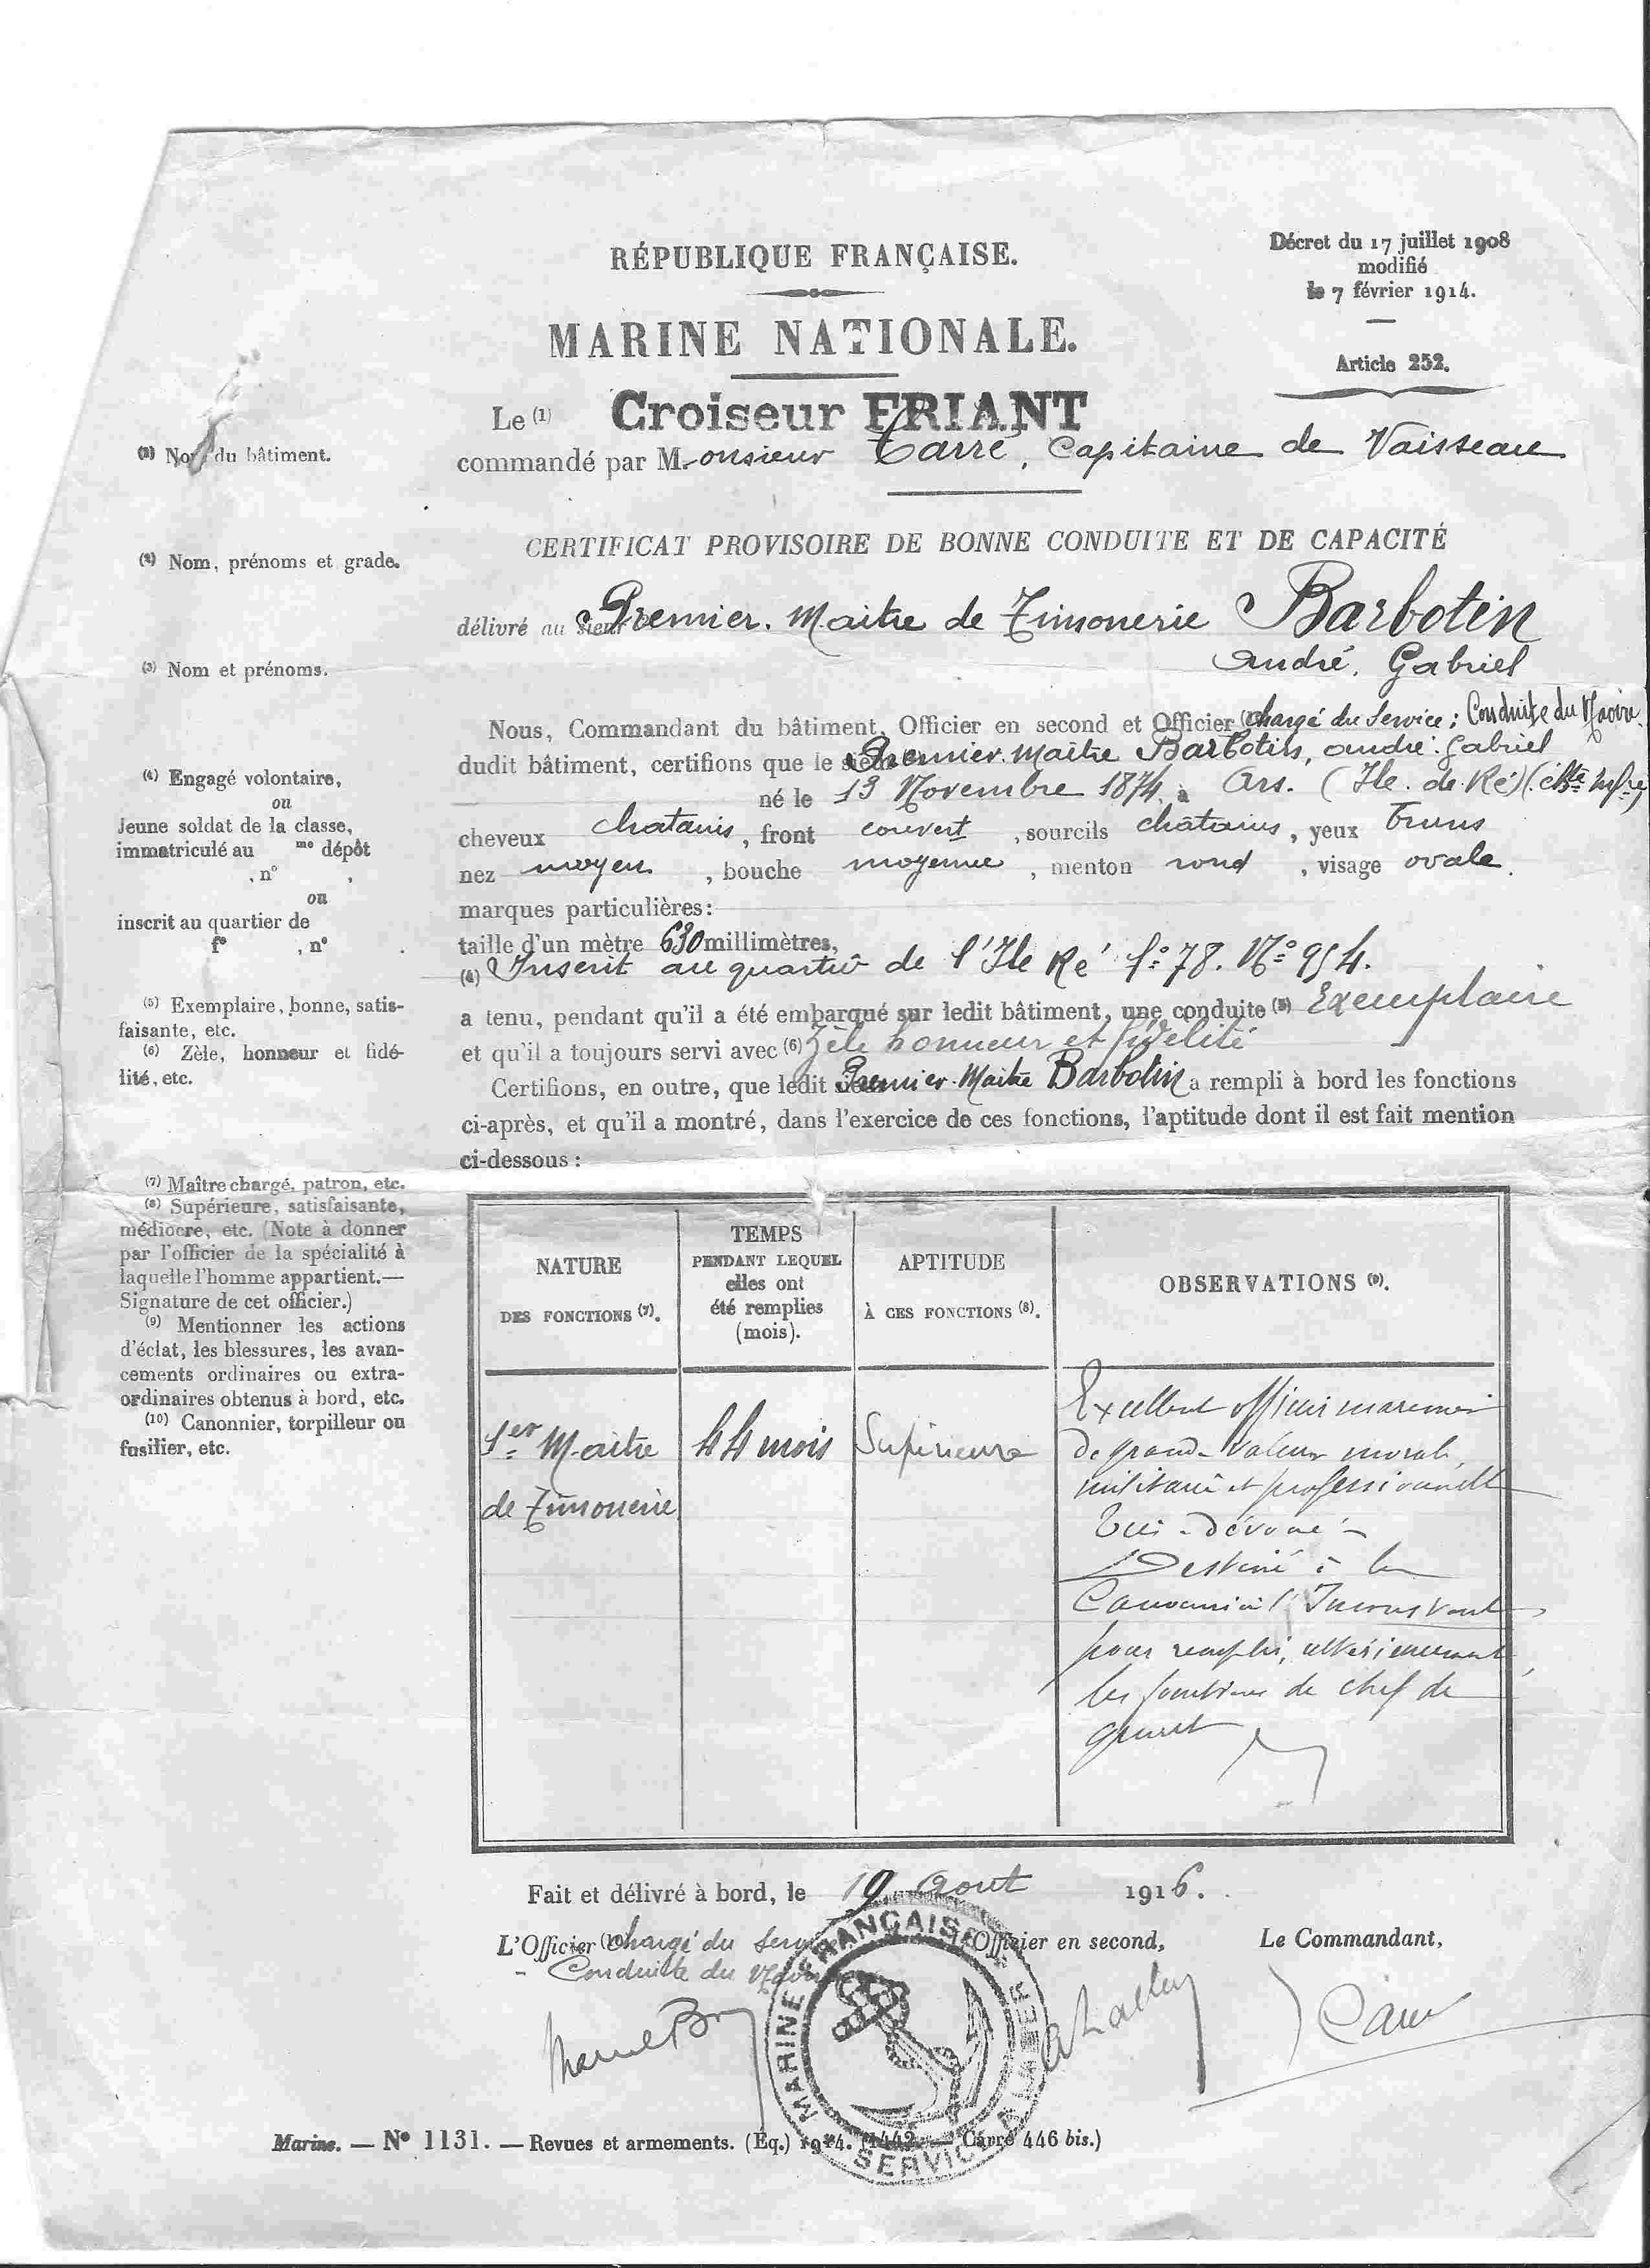 RÉPUBLIQUE FRANÇAISE.
Décret du 17 juillet 1908
modifié
le 7 février 1914.
Article 252.
MARINE NATIONALE.
Le (1) Croiseur FRIANT
commandé par Monsieur Carré, Capitaine de Vaisseau
du bâtiment.
CERTIFICAT PROVISOIRE DE BONNE CONDUITE ET DE CAPACITÉ
(2) Nom, prénoms et grade.
délivré au Sieur Premier. Maitre de Timonerie Barbotin
André. Gabriel
(3) Nom et prénoms.
Nous, Commandant du bâtiment, Officier en second et Officier chargé du Service; Conduite du Navire
dudit bâtiment, certifions que le Premier. Maitre Barbotin, andré. Gabriel
né le 13 Novembre 1874, à Ars. (Ile. de Ré) (
cheveux chatains, front couvert, sourcils châtains, yeux bruns
nez moyen, bouche moyenne, menton rond, visage ovale.
marques particulières:
taille d'un mètre 630 millimètres,
(4) Inscrit au quartier de l'Ile Ré f° 78. N° 954.
(4) Engagé volontaire,
ou
Jeune soldat de la classe,
immatriculé au me dépôt
, n° ,
ou
inscrit au quartier de
f° , n° .
a tenu, pendant qu'il a été embarqué sur ledit bâtiment, une conduite (5) Exemplaire
et qu'il a toujours servi avec (6) Zèle honneur et fidélité
Certifions, en outre, que ledit Premier. Maitre Barbotin a rempli à bord les fonctions
ci-après, et qu'il a montré, dans l'exercice de ces fonctions, l'aptitude dont il est fait mention
ci-dessous :
(5) Exemplaire, bonne, satis-
faisante, etc.
(6) Zèle, honneur et fidé-
lité, etc.
(7) Maître chargé, patron, etc.
(8) Supérieure, satisfaisante,
médiocre, etc. (Note à donner
par l'officier de la spécialité à
laquelle l'homme appartient.—
Signature de cet officier.)
(9) Mentionner les actions
d'éclat, les blessures, les avan-
cements ordinaires ou extra-
ordinaires obtenus à bord, etc.
(10) Canonnier, torpilleur ou
fusilier, etc.
NATURE
DES FONCTIONS (7).
TEMPS
PENDANT LEQUEL
elles ont
été remplies
(mois).
APTITUDE
À CES FONCTIONS (8).
OBSERVATIONS (9).
1er Maitre
de Timonerie
44 mois
Supérieure
Excellent officier marinier
de grande valeur morale,
militaire et professionnelle
Très dévoué
Destiné à la
Canonnière l'Inconstant
pour remplir, ultérieurement,
les fonctions de chef de
quart
Fait et délivré à bord, le 19 Aout 1916.
L'Officier chargé du Service
Conduite du Navire
L'Officier en second,
Le Commandant,
MARINE FRANÇAISE
SERVICE A LA MER
Marine. — N° 1131. — Revues et armements. (Éq.) 1914. [1442. — Carré 446 bis.)